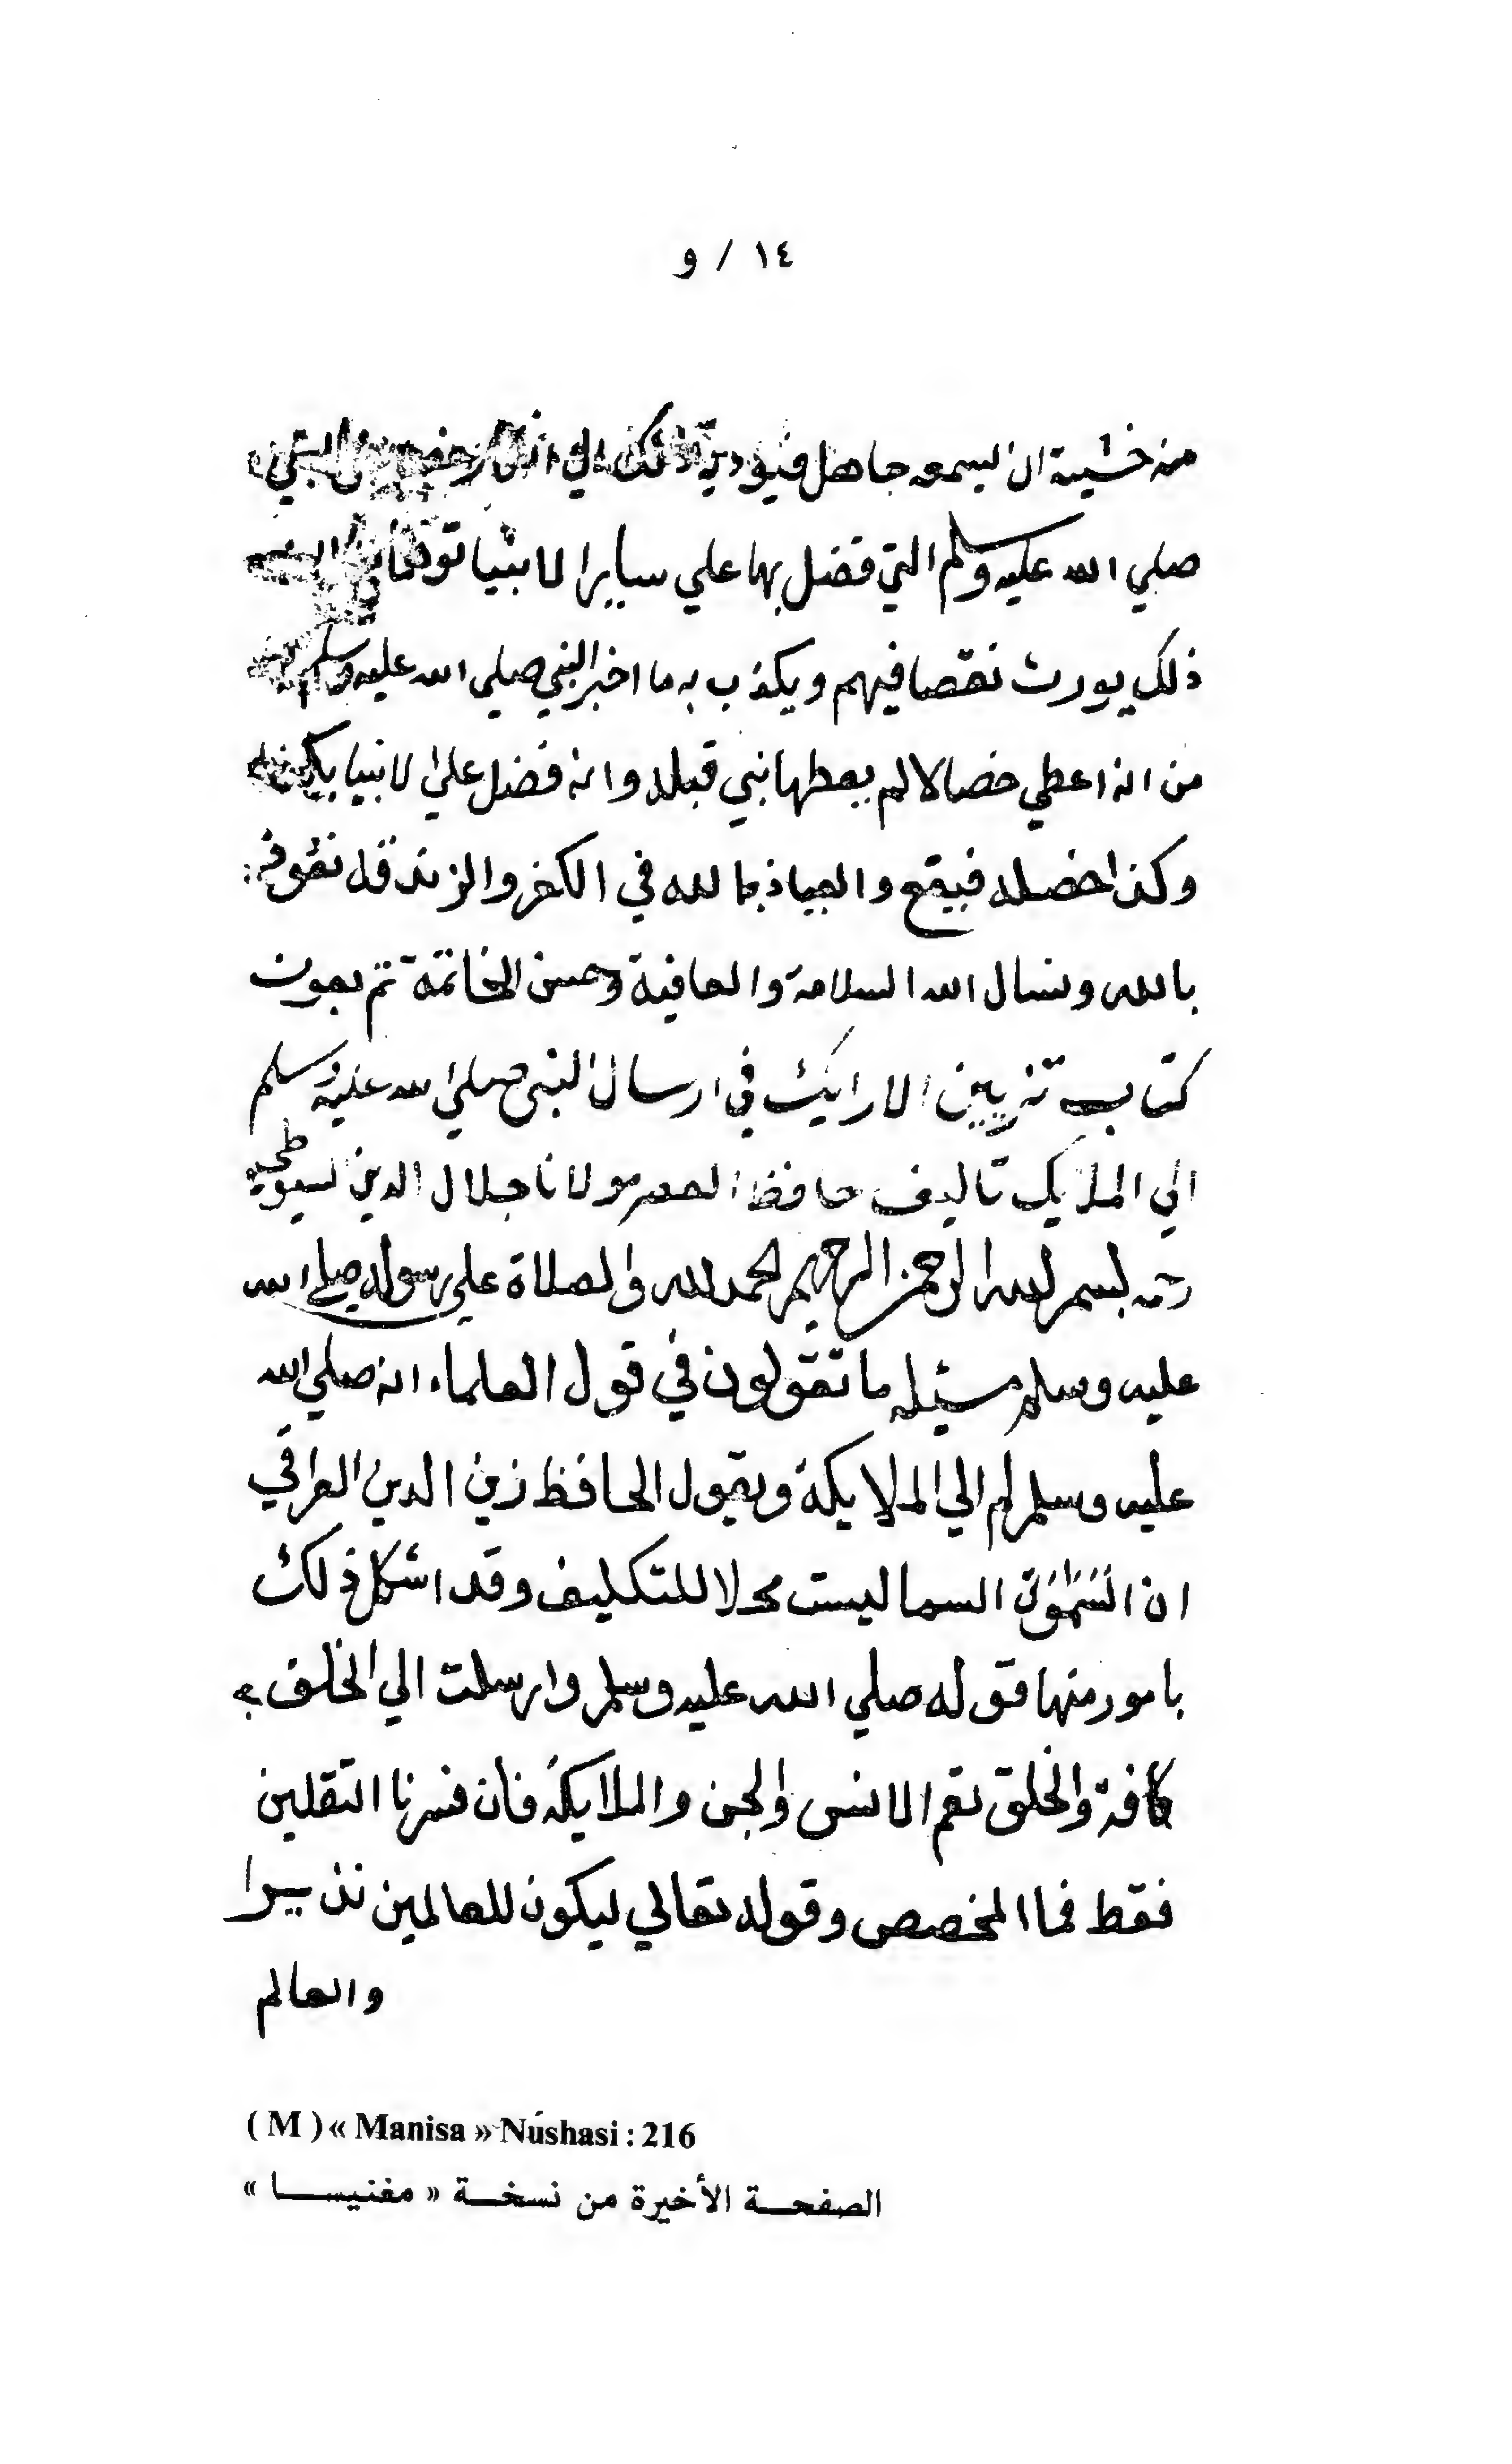 ١٤ / و
منه خشية ان يسمعه جاهل فيوديه ذلك الي انكار النبي
صلي الله عليه وسلم التي فضل بها علي ساير الانبيا توهما
ذلك يورث نقصا فيهم ويكذب به ما اخبر النبي صلي الله عليه وسلم
من انه اعطي خصالا لم يعطها نبي قبله وانه فضل علي الانبيا بكذا
وكذا خصله فيقع والعياذ بالله في الكفر والزندقه نعوذ
بالله ونسال الله السلامة والعافية وحسن الخاتمة تم بعون
كتاب تزيين الارايك في ارسال النبي صلي الله عليه وسلم
الي الملايك تاليف حافظ العصر مولانا جلال الدين السيوطي
بسم الله الرحمن الرحيم الحمد لله والصلاة علي رسوله صلي الله
عليه وسلم مسئله ما تقولون في قول العلماء انه صلي الله
عليه وسلم لم الي الملايكة وبقول الحافظ زين الدين العراقي
ان السموٰت السما ليست محلا للتكليف وقد اشكل ذلك
بامور منها قوله صلي الله عليه وسلم وارسلت الي الخلق
كافة والخلق تعم الانس والجن والملايكة فان فسرنا الثقلين
فقط فما المخصص وقوله تعالي ليكون للعالمين نذيرا
والعالم
( M ) « Manisa » Núshasi : 216
الصفحة الأخيرة من نسخة « مغنيسا »